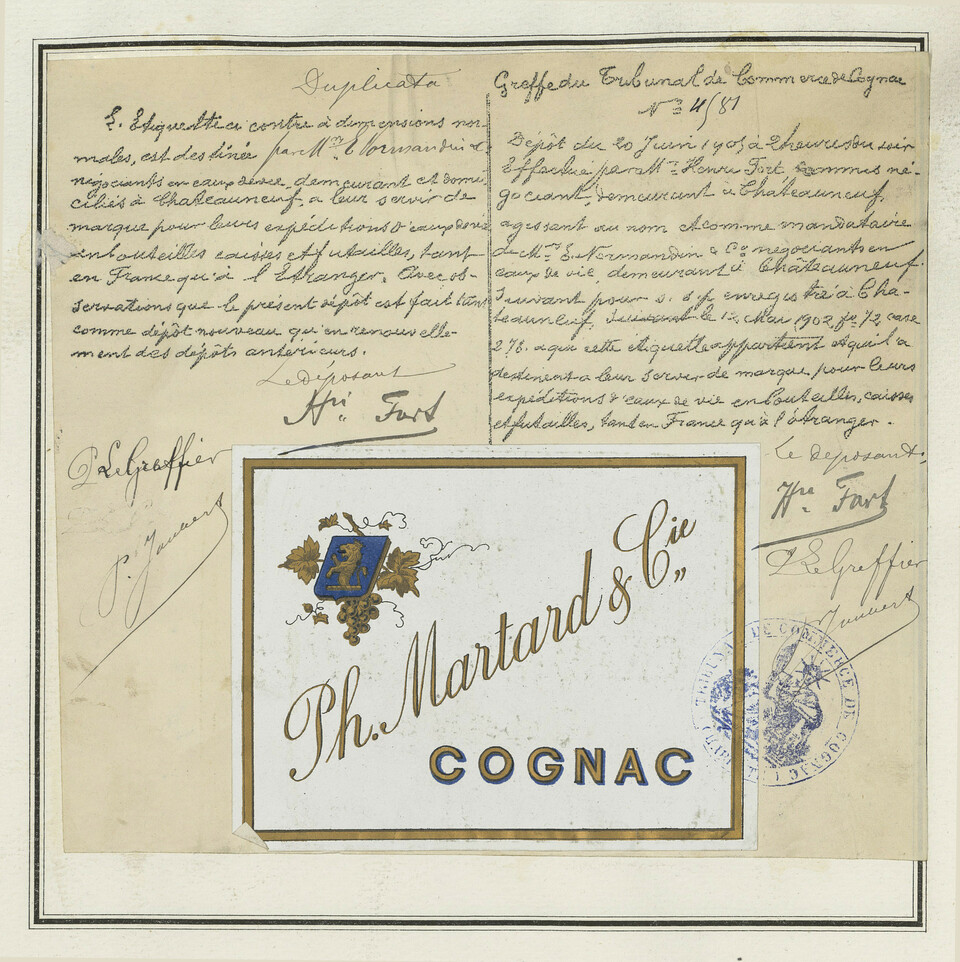 Duplicata
L'Etiquette ci contre à dimensions nor-
males, est destinée par Mrs E Normandin &
négociants en eaux de vie demeurant et domi-
ciliés à Chateauneuf, a leur servir de
marque pour leurs expéditions d'eaux de vie
en bouteilles caisses et futailles, tant
en France qu'à l'Etranger. Avec ob-
servations que le présent dépôt est fait tant
comme dépôt nouveau qu'en renouvelle-
ment des dépôts antérieurs.
Le déposant
Hri Fort
P Le Greffier
P. Jaubert
Greffe du Tribunal de Commerce de Cognac
No 4/81
Dépôt du 20 Juin 1905 à 2 heures du soir
Effectué par Mr Henri Fort, commis né-
gociant, demeurant à Chateauneuf,
agissant au nom et comme mandataire
de Mrs E. Normandin & Co négociants en
eaux de vie demeurant à Châteauneuf.
Suivant pour s. s. p. enregistré à Cha-
teauneuf, le 12 Mai 1902, fo 72, case
276. a qui cette étiquette appartient et qu'il a
destinent a leur servir de marque pour leurs
expéditions d'eaux de vie en bouteilles, caisses
et futailles, tant en France qu'à l'étranger.
Le déposant,
Hre Fort
P Le Greffier
Jaubert
Ph. Martard & Cie
COGNAC
TRIBUNAL DE COMMERCE DE COGNAC